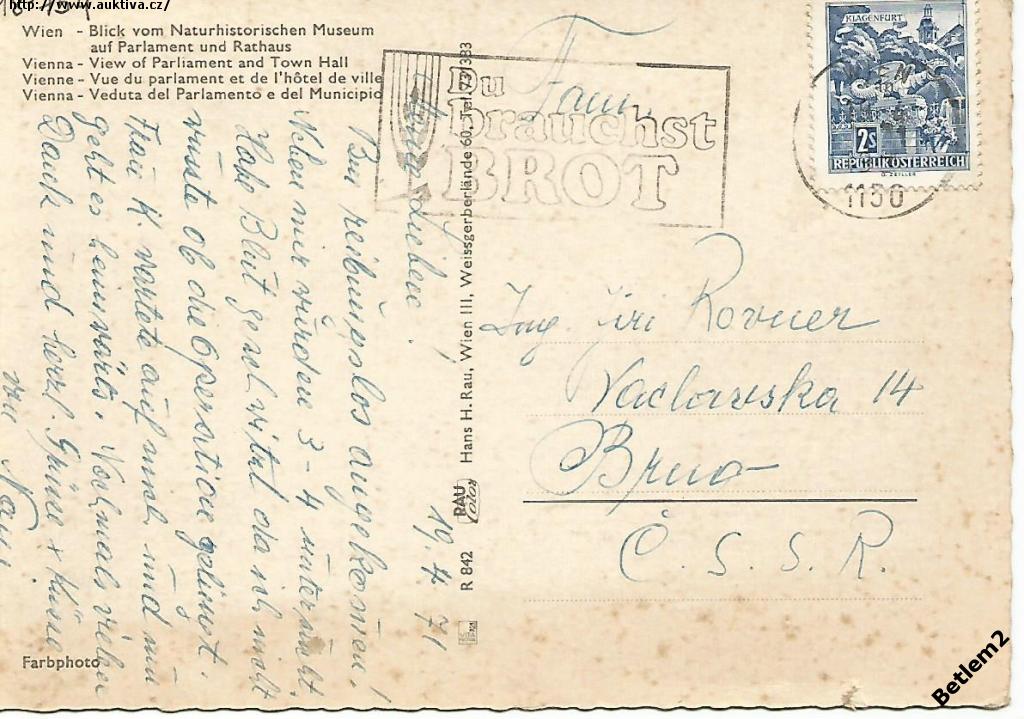 http://www.auktiva.cz/
Wien - Blick vom Naturhistorischen Museum
auf Parlament und Rathaus
Vienna - View of Parliament and Town Hall
Vienne - Vue du parlament et de l'hôtel de ville
Vienna - Veduta del Parlamento e del Municipio
Du
brauchst
BROT
KLAGENFURT
2S
REPUBLIK ÖSTERREICH
WIEN
1150
Fam.
Ing. Jiři Rovner
Vaclavska 14
Brno
Č. S. S. R.
19. 4 71
Meine Lieben!
Bin reibungslos angekommen!
Neben mir wurden 3-4 untersucht.
Habe Blut geschwitzt da ich nicht
wusste ob die Operation gelingt.
Frau K. wartete auf mich und nun
geht es heimwärts. Nochmals vielen
Dank und herzl. Grüsse & Küsse
R 842
RAU
Color
Hans H. Rau, Wien III, Weissgerberlände 60, Tel. 737383
Farbphoto
Betlem2